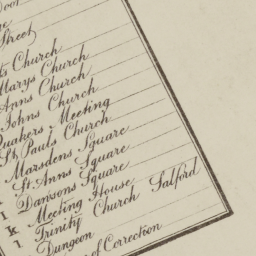 Street
Church
Marys Church
Anns Church
Johns Church
Quakers Meeting
St. Pauls Church
Marsdens Square
St. Anns Square
Dawsons Square
Meeting House
Trinity Church Salford
Dungeon
of Correction